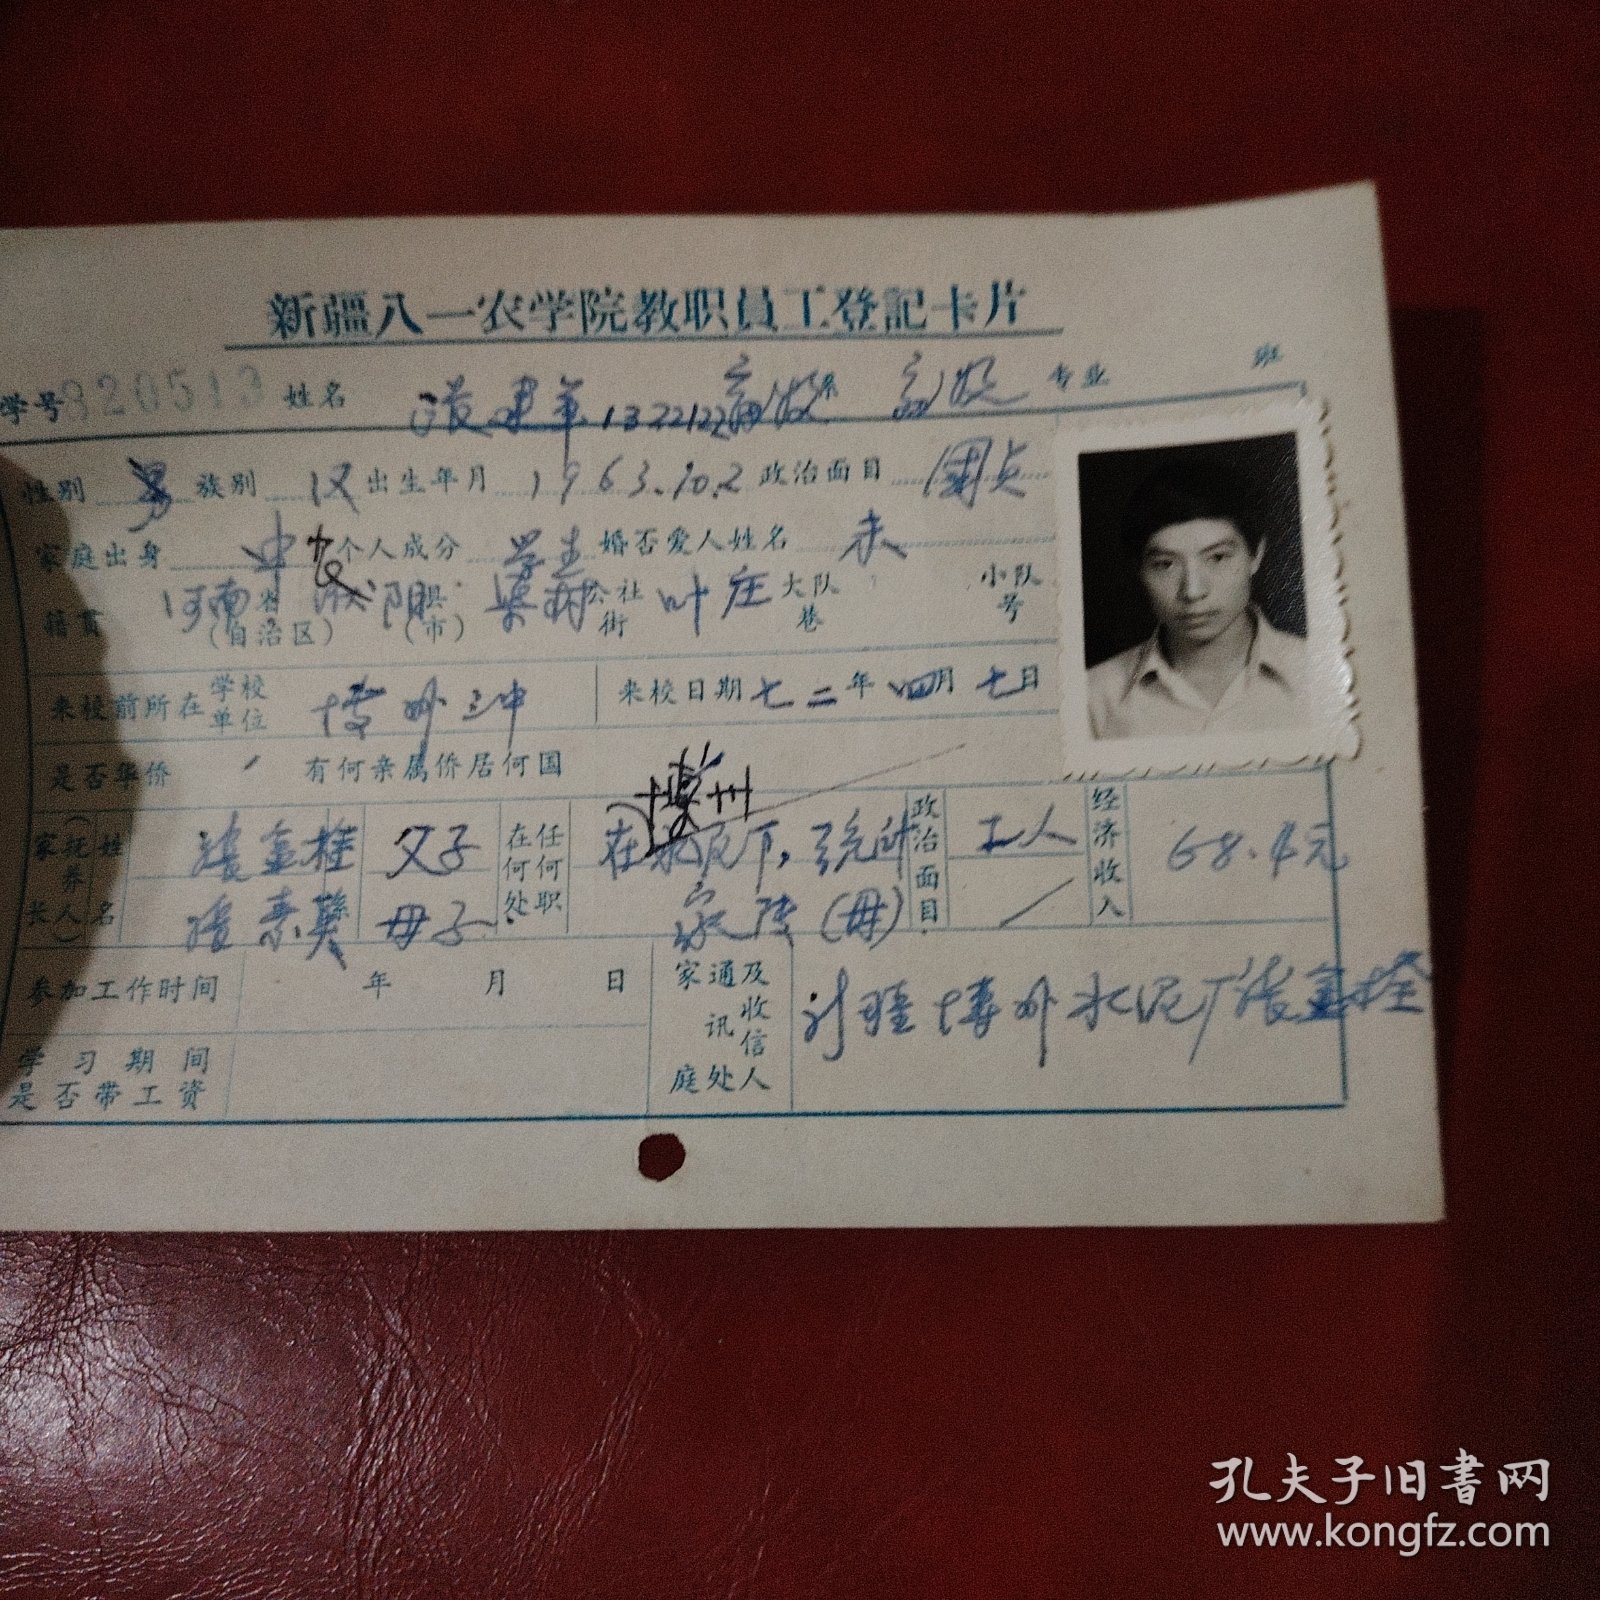 新疆八一农学院教职员工登記卡片
学号820513 姓名 张建军 系 专业 班
性别 男 族别 汉 出生年月 1963.10.2 政治面目 团员
家庭出身 中农 个人成分 学生 婚否爱人姓名 未
籍贯 河南省(自治区) 濮阳县(市) 梁村公社街 叶庄大队巷 小队号
来校前所在学校单位 博州三中 来校日期 七二年四月七日
是否华侨 有何亲属侨居何国
家长(抚养人)姓名 张金栓 父子 系 在何处任何职 在博州水泥厂, 统计 政治面目 工人 经济收入 68.4元
张素英 母子 家属(母)
参加工作时间 年 月 日 家庭通讯处及收信人 新疆博州水泥厂张金栓
学习期间是否带工资
孔夫子旧書网
www.kongfz.com